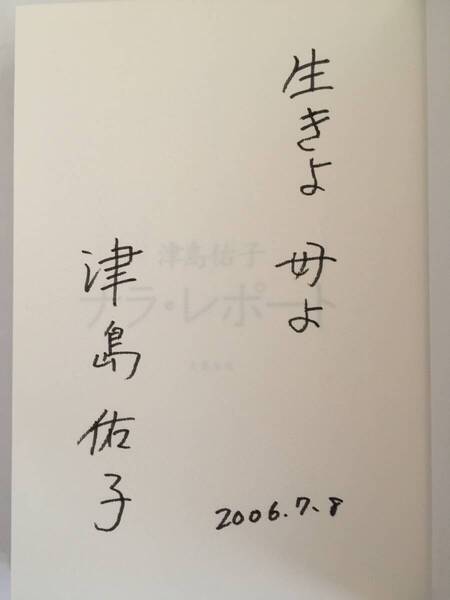 生きよ 母よ
津島佑子
2006.7.8
津島佑子
ナラ・レポート